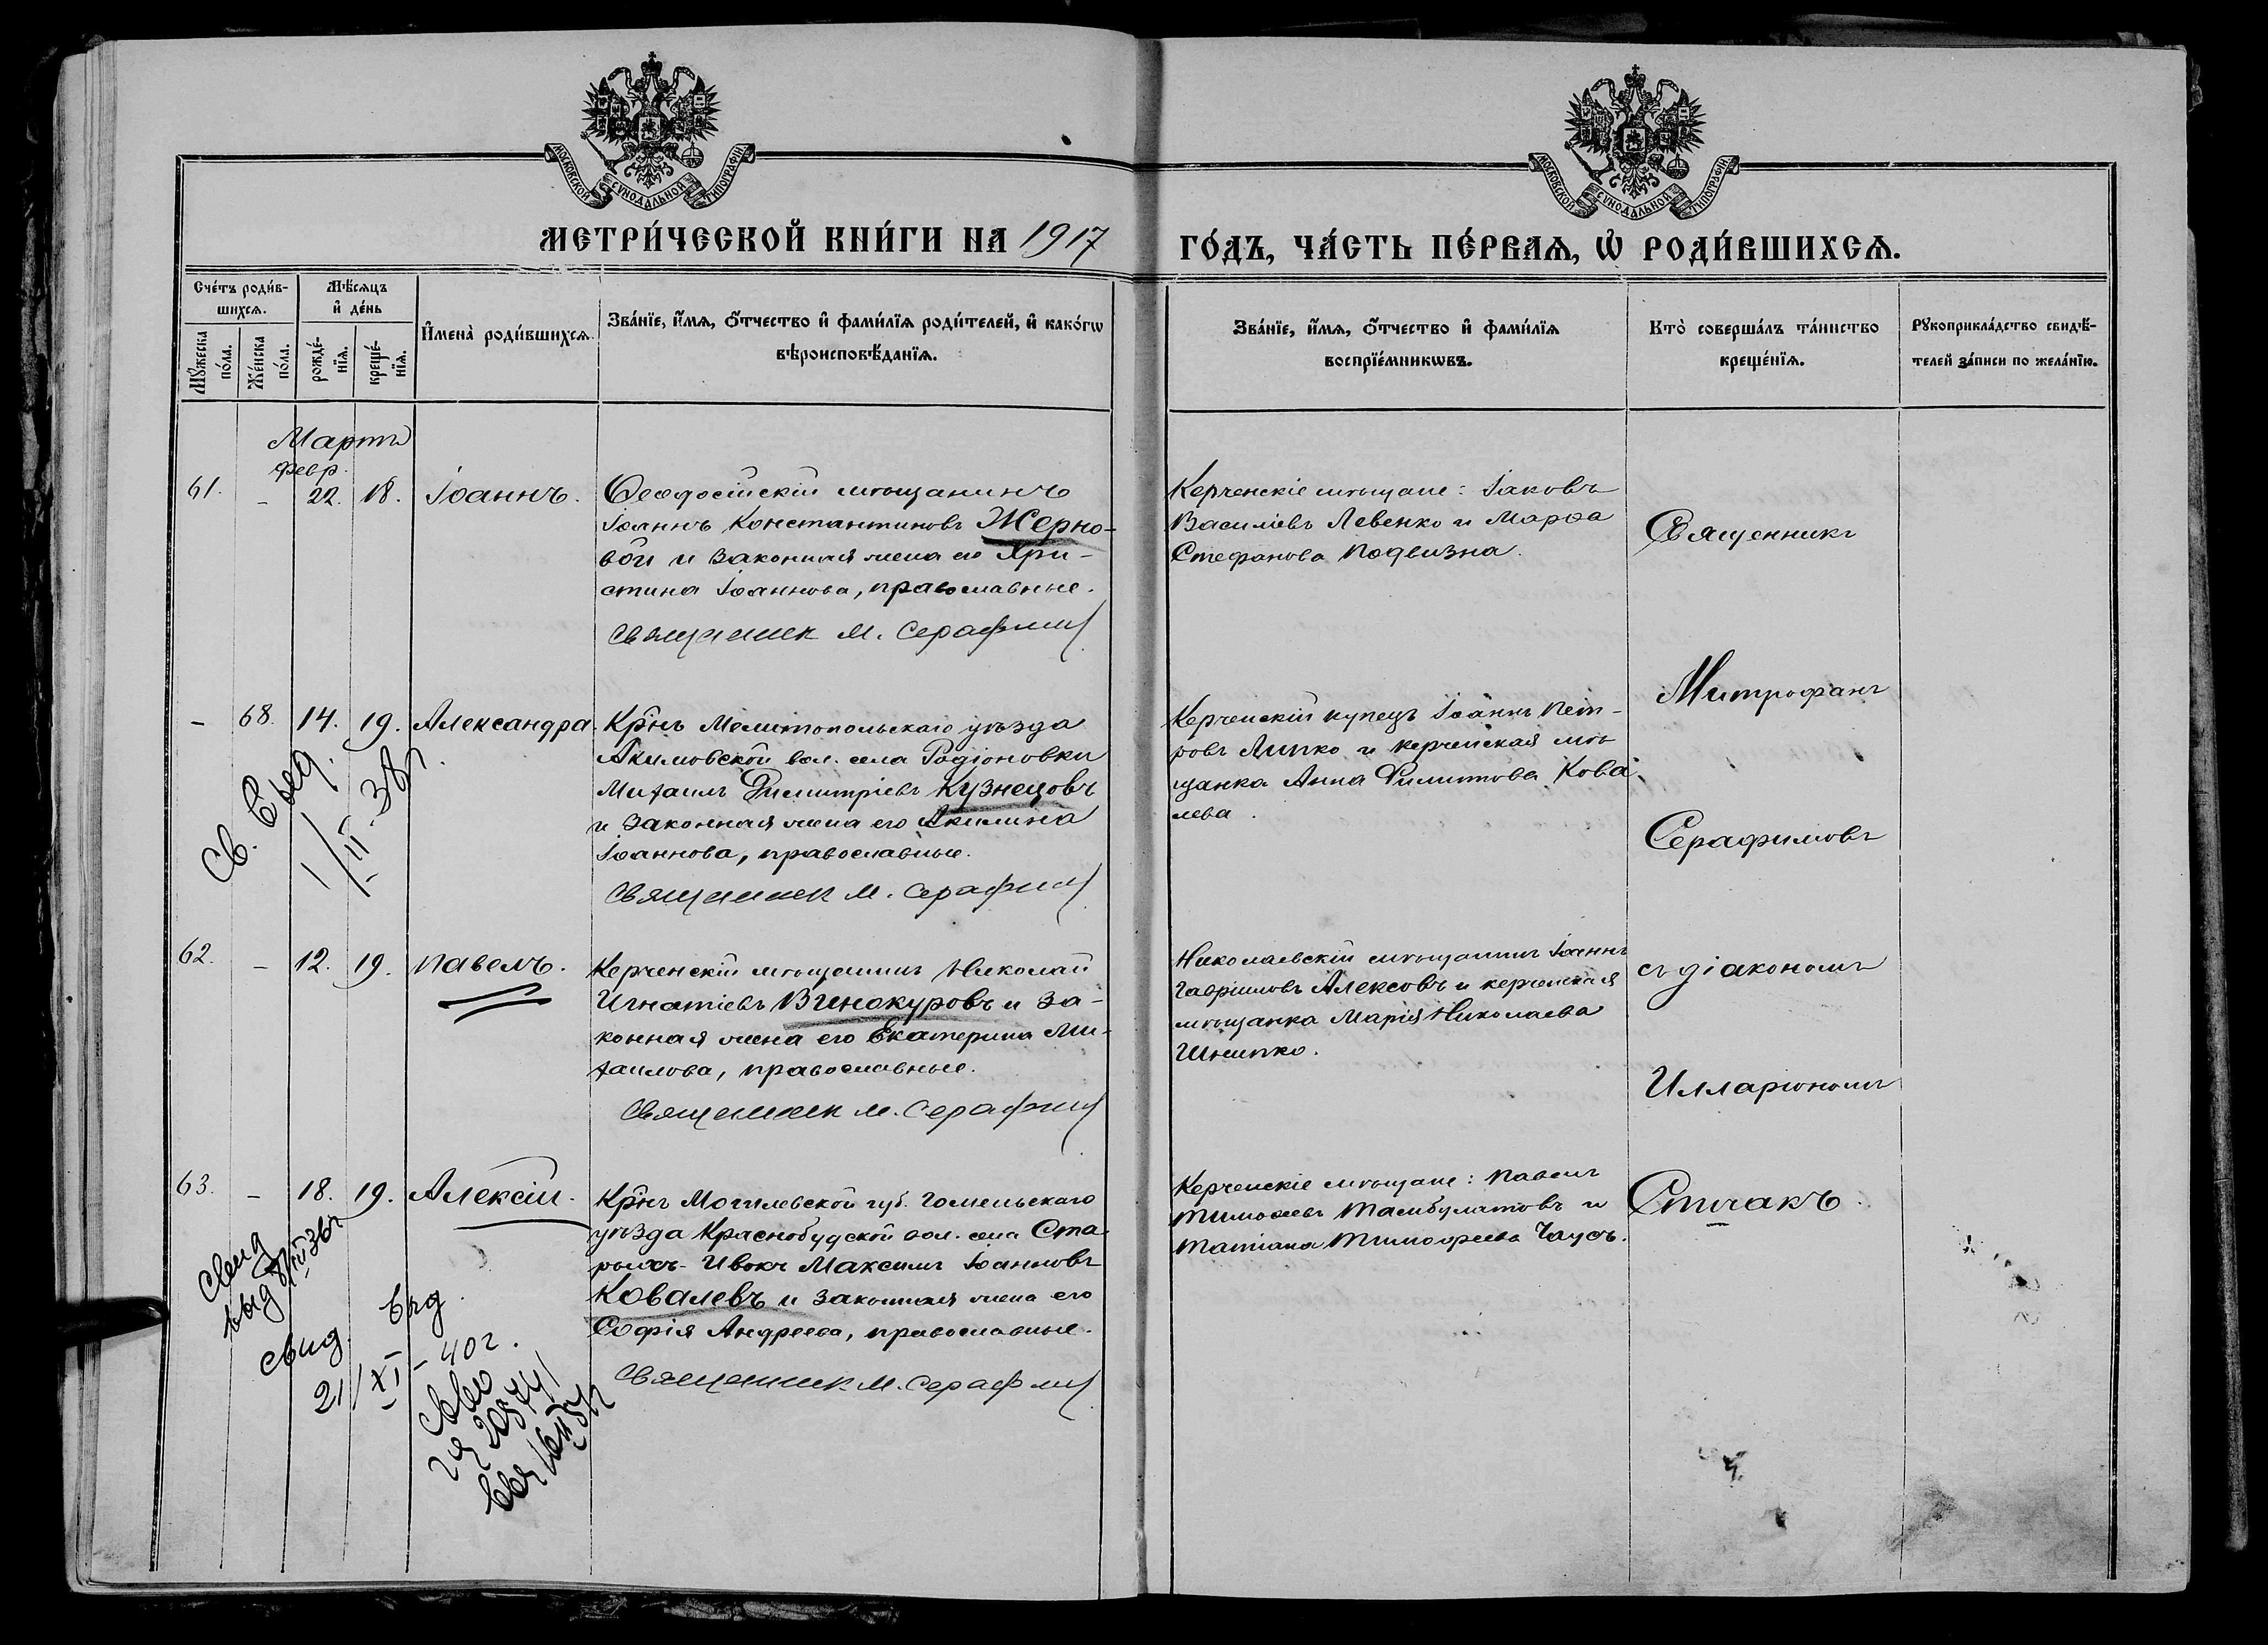 МОСКОВСКОЙ СѴНОДАЛЬНОЙ ТИПОГРАФІИ
МОСКОВСКОЙ СѴНОДАЛЬНОЙ ТИПОГРАФІИ
МЕТРИ́ЧЕСКОЙ КНИ́ГИ НА 1917
ГО́ДЪ, ЧА́СТЬ ПЕ́РВАѦ, Ѡ҆ РОДИ́ВШИХСѦ.
Сче́тъ роди́в-
шихсѧ.
Мѣ́сѧцъ
и҆ де́нь
Мꙋ́жеска
по́ла.
Же́нска
по́ла.
рожде́-
нїѧ.
креще́-
нїѧ.
И҆мена̀ роди́вшихсѧ.
Зва́нїе, и҆́мѧ, ѻ҆́тчество и҆ фами́лїѧ роди́телей, и҆ како́гѡ
вѣроисповѣ́данїѧ.
Зва́нїе, и҆́мѧ, ѻ҆́тчество и҆ фами́лїѧ
воспрїе́мникѡвъ.
Кто̀ соверша́лъ та́инство
креще́нїѧ.
Рꙋкоприкла́дство свидѣ́-
телей за́писи по жела́нїю.
Мартъ
Февр.
61. - 22. 18. Іоаннъ.
Ѳеодосійскій мѣщанинъ
Іоаннъ Константиновъ Жерно-
вой и законная жена его Хри-
стина Іоаннова, православные.
Священник М. Серафим
Керченскіе мѣщане: Іаковъ
Василіевъ Левенко и Марѳа
Стефанова Подвизна.
Священникъ
- 68. 14. 19. Александра.
Кр-нъ Мелитопольскаго уѣзда
Акимовской вол. села Родіоновки
Михаилъ Димитріевъ Кузнецовъ
и законная жена его Акилина
Іоаннова, православные.
Священник М. Серафим
Керченскій купецъ Іоаннъ Пет-
ровъ Липко и керченская мѣ-
щанка Анна Филиппова Кова-
лева.
Митрофанъ
Серафимовъ
Св.
1/II-38г.
62. - 12. 19. Павелъ.
Керченскій мѣщанинъ Николай
Игнатіевъ Винокуровъ и за-
конная жена его Екатерина Ми-
хаилова, православные.
Священник М. Серафим
Николаевскій мѣщанинъ Іоаннъ
Гавріиловъ Алексовъ и керченская
мѣщанка Марія Николаева
Шнипко.
съ діакономъ
Илларіономъ
63. - 18. 19. Алексій.
Кр-нъ Могилевской губ. Гомельскаго
уѣзда Краснобудской вол. села Ста-
Максимъ Іоанновъ
Ковалевъ и законная жена его
Софія Андреева, православные.
Священник М. Серафим
Керченскіе мѣщане: Павелъ
Тимоѳеевъ Тамбулатовъ и
Татіана Тимоѳеева Чаусъ.
Спичакъ.
свид
выд
свид. выд.
21/XI-40г.